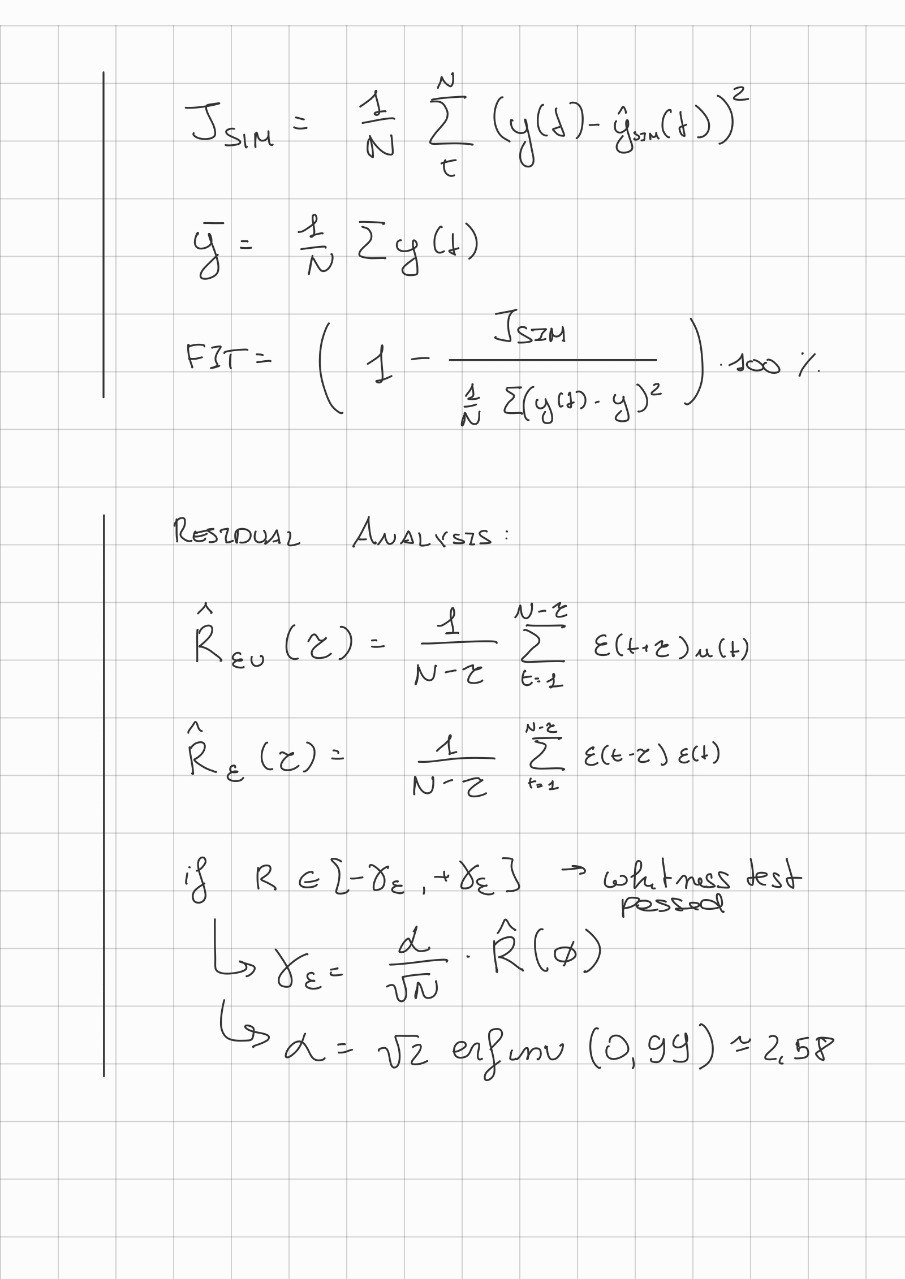 J_SIM = 1/N ∑_t^N (y(t) - ŷ_SIM(t))²
ȳ = 1/N ∑ y(t)
FIT = ( 1 - J_SIM / (1/N ∑(y(t) - y)²) ) · 100 %
RESIDUAL ANALYSIS:
R̂_εu (τ) = 1/(N-τ) ∑_{t=1}^{N-τ} ε(t+τ) u(t)
R̂_ε (τ) = 1/(N-τ) ∑_{t=1}^{N-τ} ε(t-τ) ε(t)
if R ∈ [-γ_ε, +γ_ε] → whitness test
passed
↳ γ_ε = α/√N · R̂(∅)
↳ α = √2 erfinv (0,99) ≈ 2,58